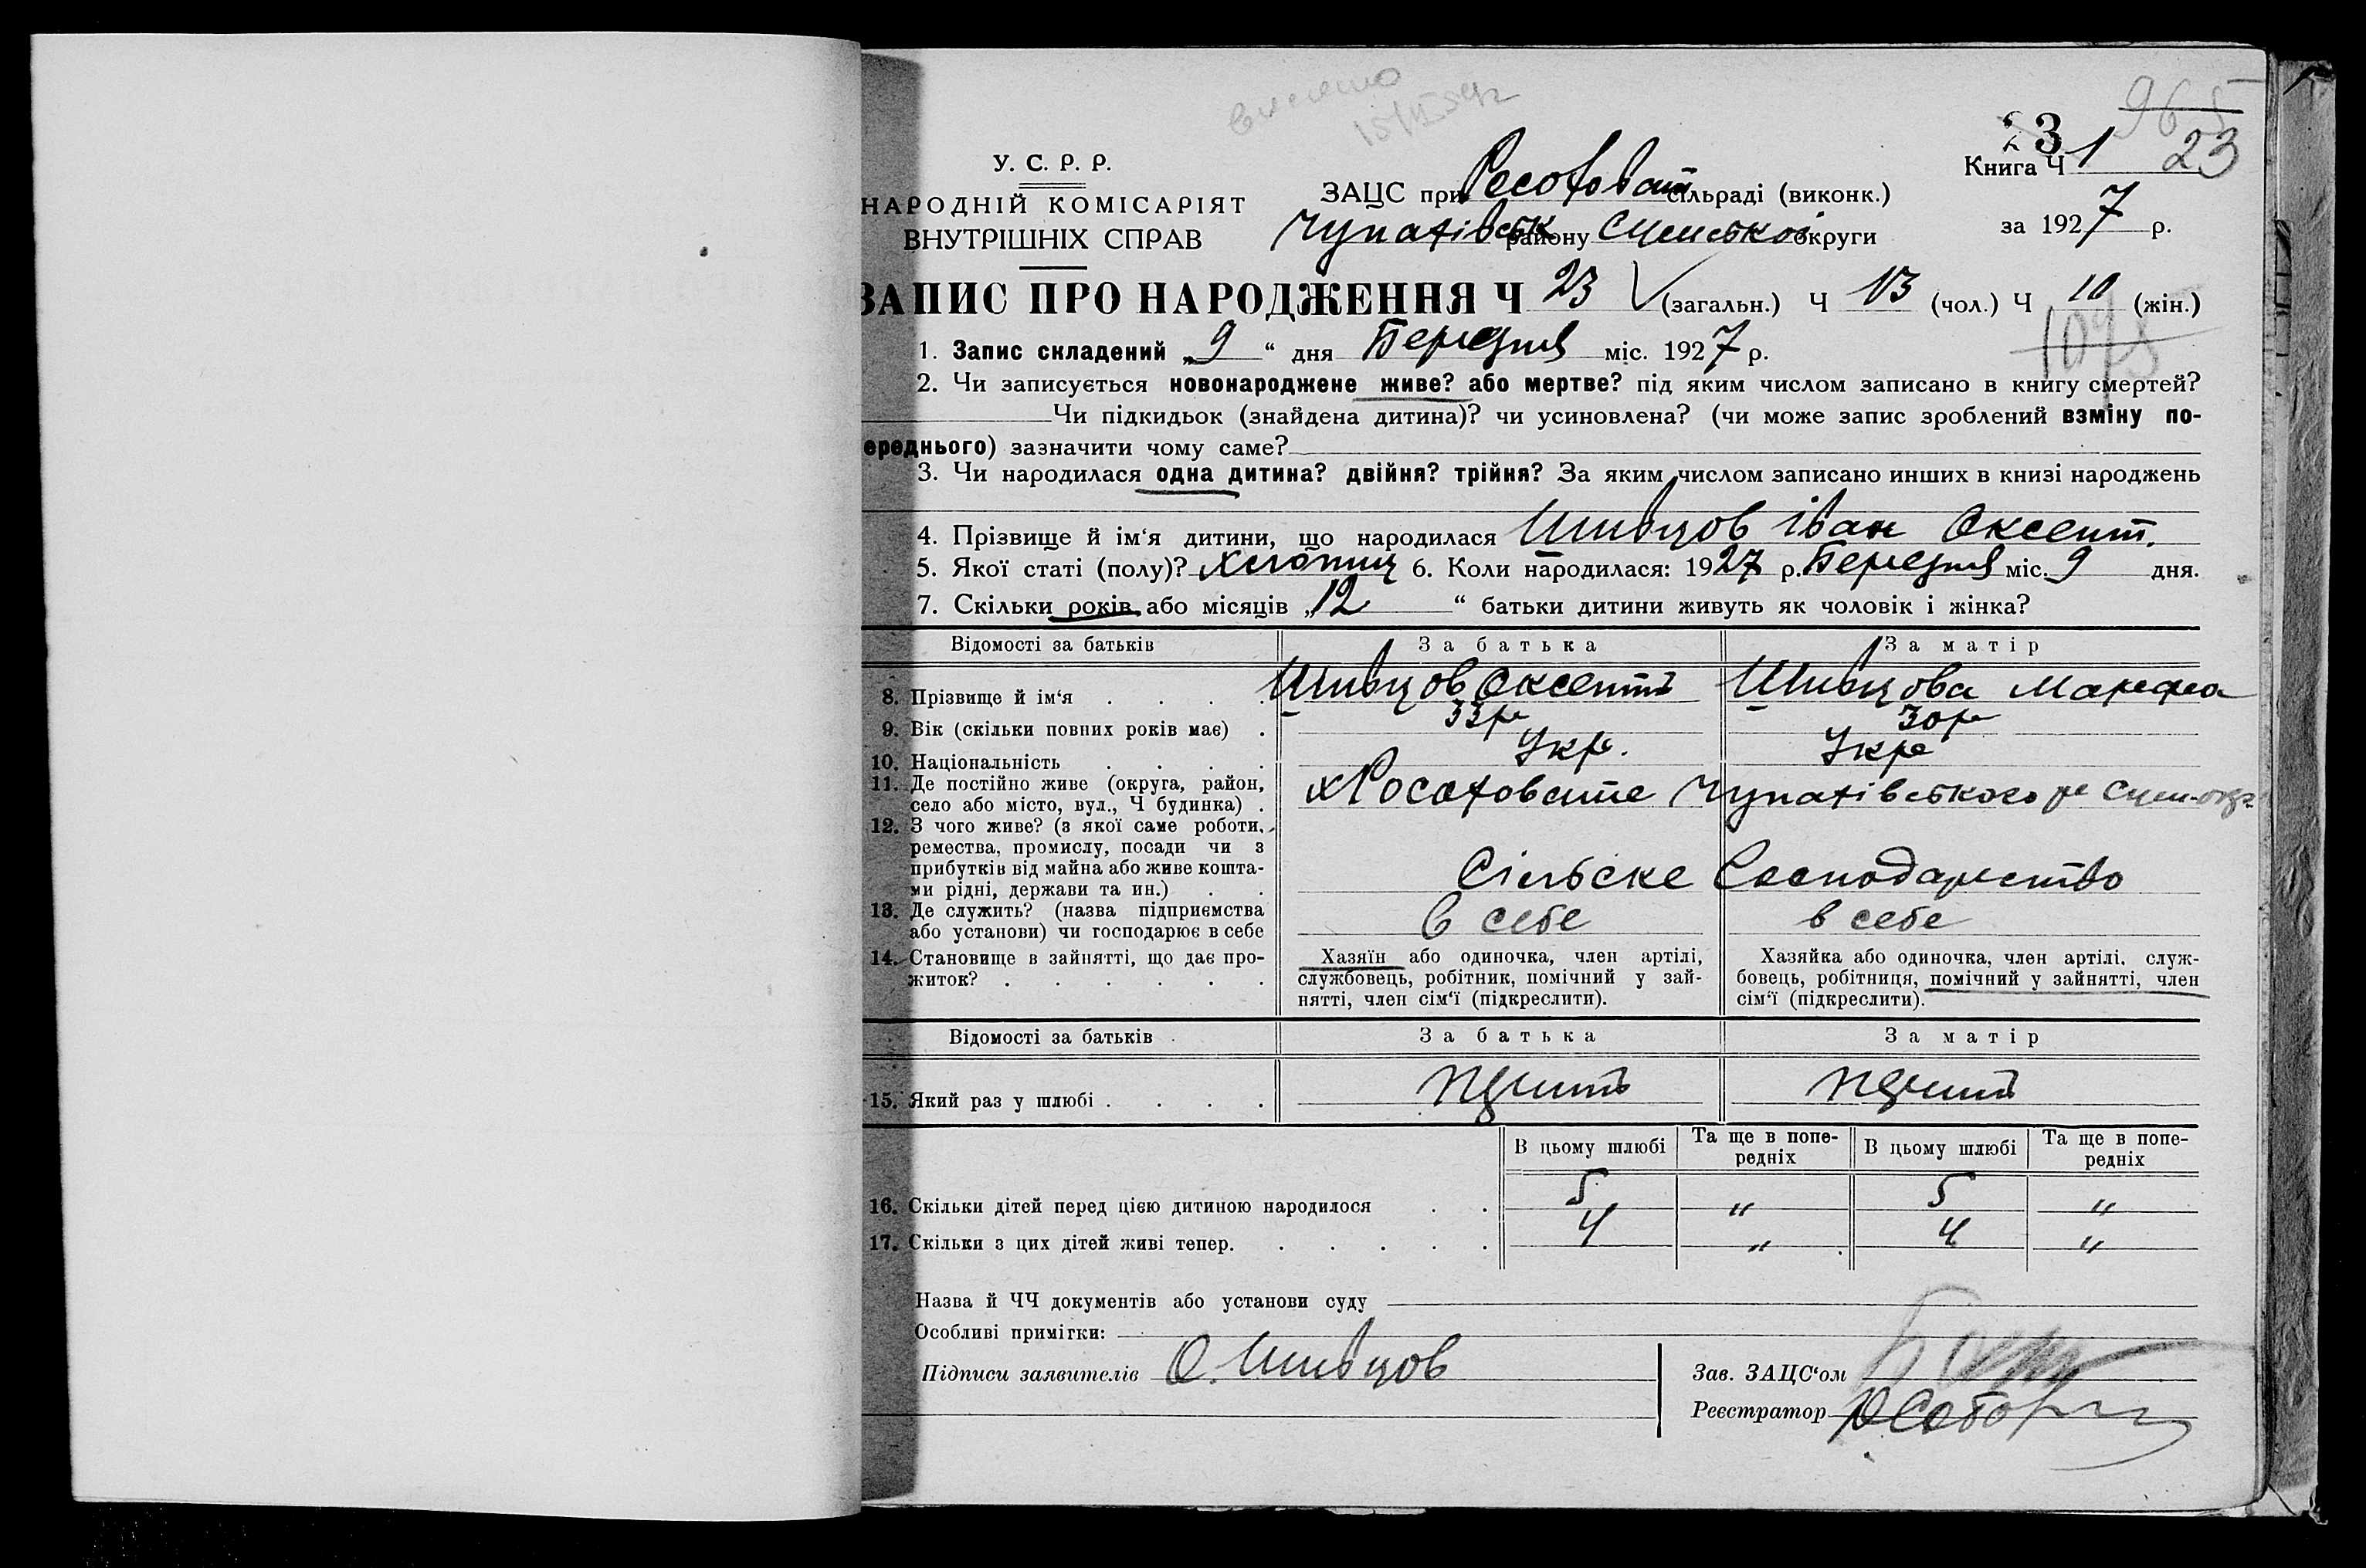 внесено
15/III 54р
965
23
У. С. Р. Р.
НАРОДНІЙ КОМІСАРІЯТ
ВНУТРІШНІХ СПРАВ
ЗАЦС при Росоховат сільраді (виконк.)
Чупахівськ району Сумської округи
Книга Ч 1 23
за 1927 р.
ЗАПИС ПРО НАРОДЖЕННЯ Ч 23 (загальн.) Ч 13 (чол.) Ч 10 (жін.)
1. Запис складений „9“ дня Березня міс. 1927 р.
2. Чи записується новонароджене живе? або мертве? під яким числом записано в книгу смертей?
Чи підкидьок (знайдена дитина)? чи усиновлена? (чи може запис зроблений взміну по-
ереднього) зазначити чому саме?
3. Чи народилася одна дитина? двійня? трійня? За яким числом записано инших в книзі народжень
4. Прізвище й ім‘я дитини, що народилася Шивцов Іван Оксент.
5. Якої статі (полу)? Хлопиць 6. Коли народилася: 1927 р. Березня міс. 9 дня.
7. Скільки років або місяців „12“ батьки дитини живуть як чоловік і жінка?
Відомості за батьків За батька За матір
8. Прізвище й ім‘я Шивцов Оксентій Шивцова Марфа
9. Вік (скільки повних років має) 33р 30р
10. Національність Укр. Укр
11. Де постійно живе (округа, район,
село або місто, вул., Ч будинка) х Росоховате Чупахівського р Сум. окр.
12. З чого живе? (з якої саме роботи,
ремества, промислу, посади чи з
прибутків від майна або живе кошта-
ми рідні, держави та ин.) Сільске Господарство
13. Де служить? (назва підприємства
або установи) чи господарює в себе в себе в себе
14. Становище в зайнятті, що дає про-
житок?
Хазяїн або одиночка, член артілі,
службовець, робітник, помічний у зай-
нятті, член сім‘ї (підкреслити).
Хазяйка або одиночка, член артілі, служ-
бовець, робітниця, помічний у зайнятті, член
сім‘ї (підкреслити).
Відомості за батьків За батька За матір
15. Який раз у шлюбі
В цьому шлюбі Та ще в попе-
редніх В цьому шлюбі Та ще в попе-
редніх
16. Скільки дітей перед цією дитиною народилося 5 " 5 "
17. Скільки з цих дітей живі тепер. 4 " 4 "
Назва й ЧЧ документів або установи суду
Особливі примітки:
Підписи заявителів О. Шивцов
Зав. ЗАЦС‘ом
Реєстратор